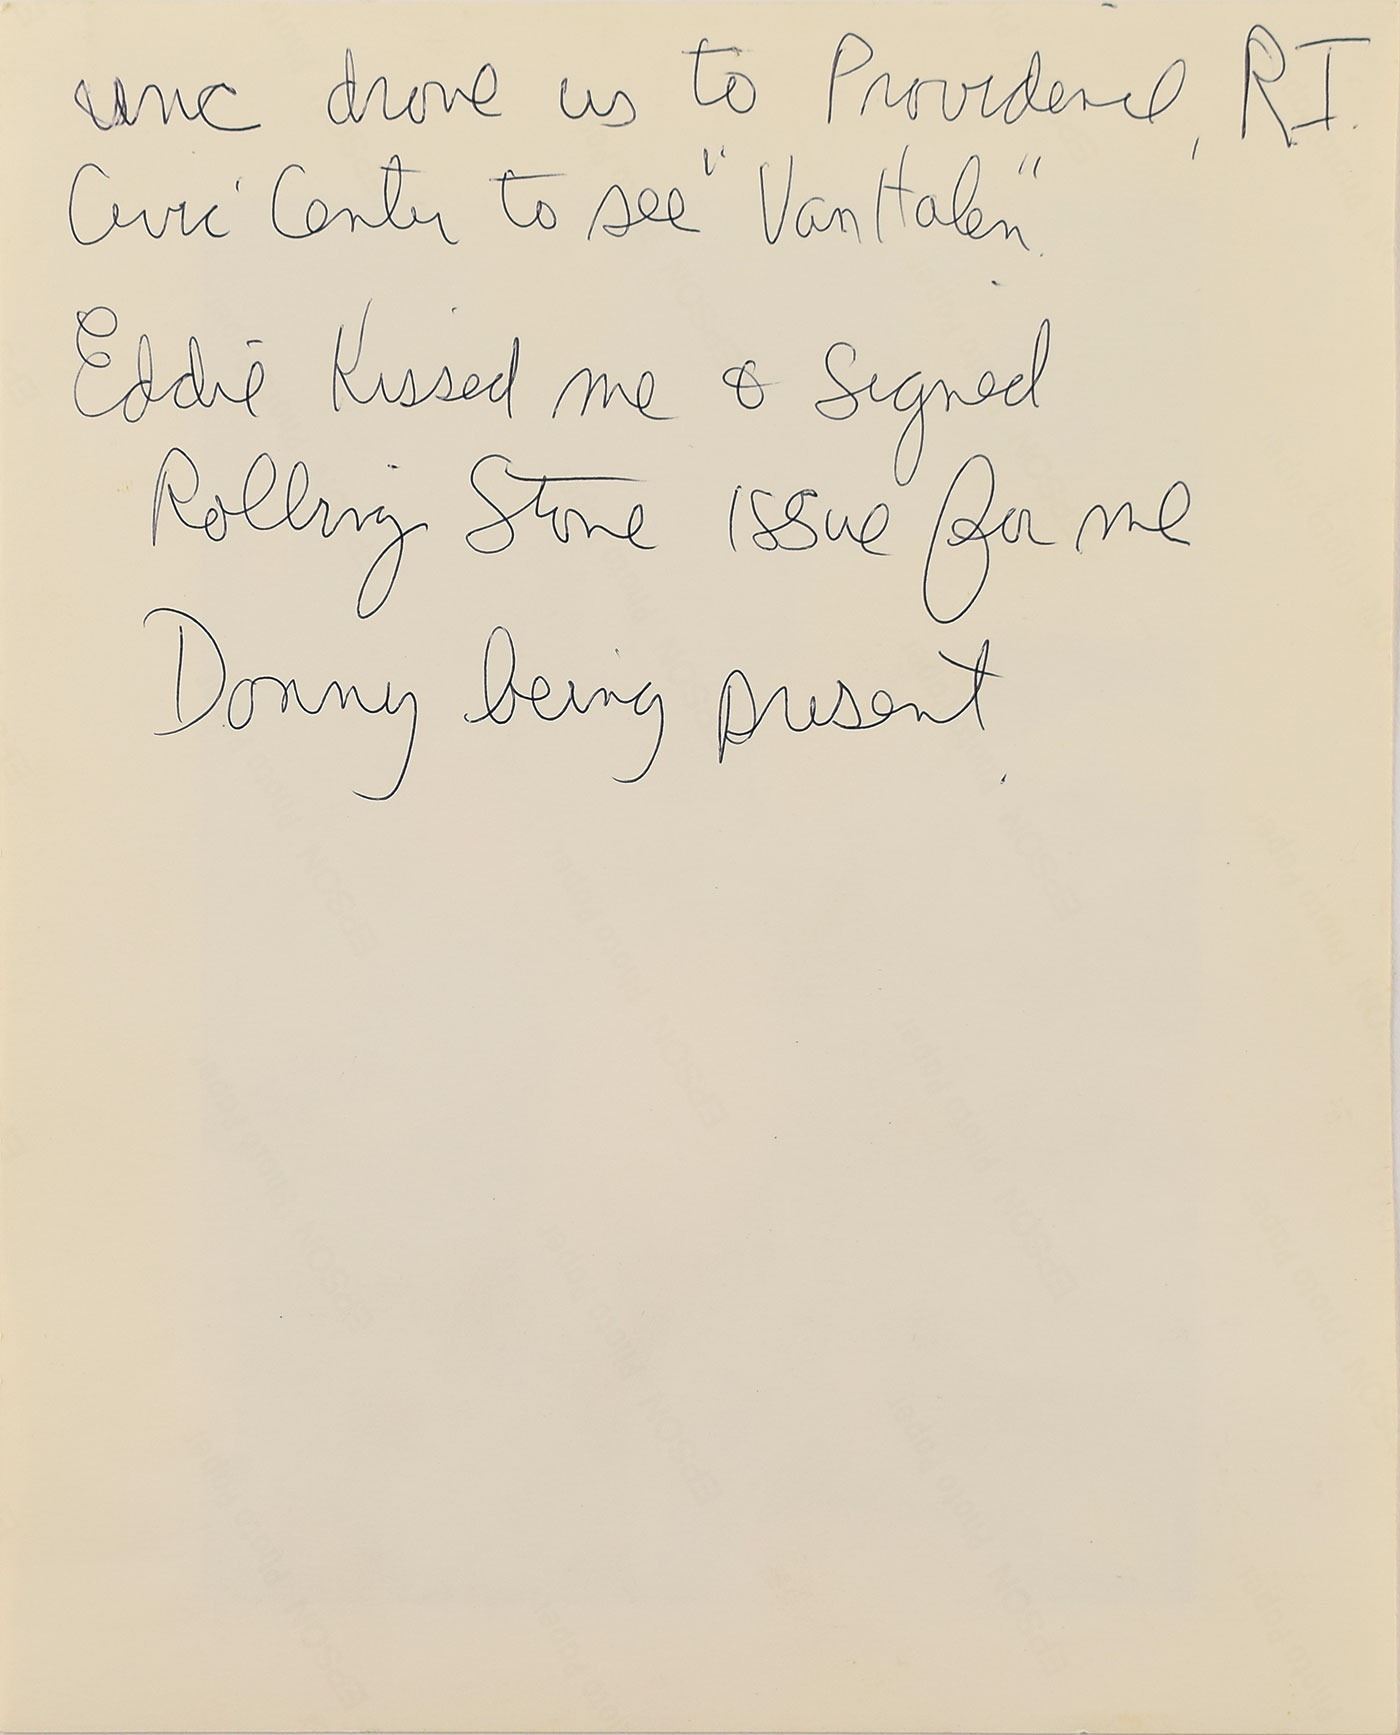 unc drove us to Providence, RI.
Civic Center to see "Van Halen".
Eddie Kissed me & Signed
Rolling Stone issue for me
Donny being present.
EPSON photo paper